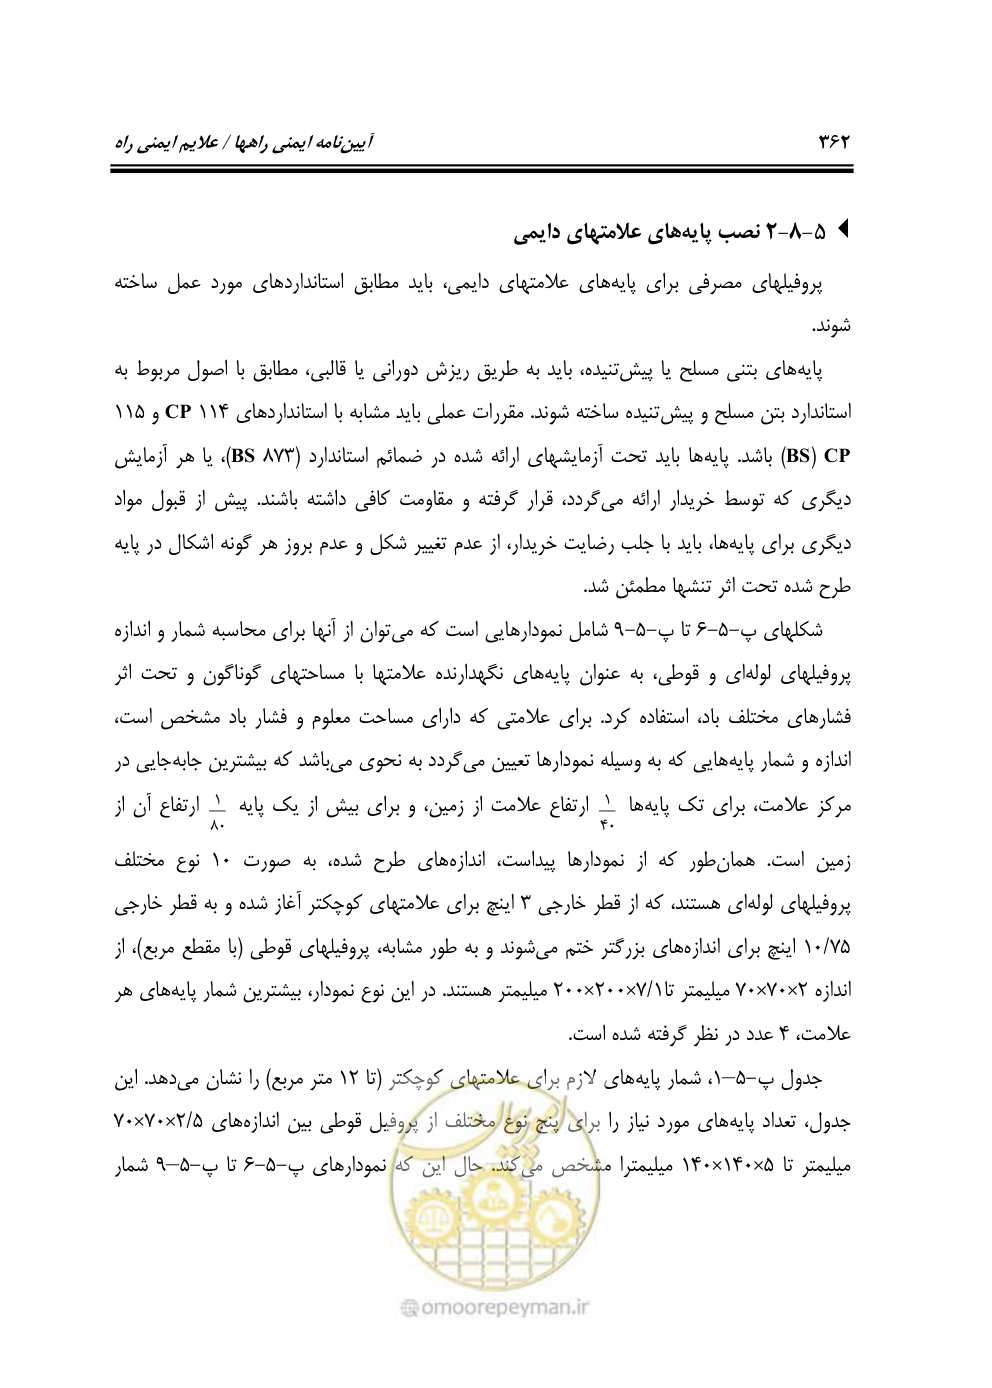 ۳۶۲
آیین‌نامه ایمنی راهها / علایم ایمنی راه
۵-۸-۲ نصب پایه‌های علامتهای دایمی
پروفیلهای مصرفی برای پایه‌های علامتهای دایمی، باید مطابق استانداردهای مورد عمل ساخته
شوند.
پایه‌های بتنی مسلح یا پیش‌تنیده، باید به طریق ریزش دورانی یا قالبی، مطابق با اصول مربوط به
استاندارد بتن مسلح و پیش‌تنیده ساخته شوند. مقررات عملی باید مشابه با استانداردهای CP ۱۱۴ و ۱۱۵
CP (BS) باشد. پایه‌ها باید تحت آزمایشهای ارائه شده در ضمائم استاندارد (BS ۸۷۳)، یا هر آزمایش
دیگری که توسط خریدار ارائه می‌گردد، قرار گرفته و مقاومت کافی داشته باشند. پیش از قبول مواد
دیگری برای پایه‌ها، باید با جلب رضایت خریدار، از عدم تغییر شکل و عدم بروز هر گونه اشکال در پایه
طرح شده تحت اثر تنشها مطمئن شد.
شکلهای پ-۵-۶ تا پ-۵-۹ شامل نمودارهایی است که می‌توان از آنها برای محاسبه شمار و اندازه
پروفیلهای لوله‌ای و قوطی، به عنوان پایه‌های نگهدارنده علامتها با مساحتهای گوناگون و تحت اثر
فشارهای مختلف باد، استفاده کرد. برای علامتی که دارای مساحت معلوم و فشار باد مشخص است،
اندازه و شمار پایه‌هایی که به وسیله نمودارها تعیین می‌گردد به نحوی می‌باشد که بیشترین جابه‌جایی در
مرکز علامت، برای تک پایه‌ها ۱/۴۰ ارتفاع علامت از زمین، و برای بیش از یک پایه ۱/۸۰ ارتفاع آن از
زمین است. همان‌طور که از نمودارها پیداست، اندازه‌های طرح شده، به صورت ۱۰ نوع مختلف
پروفیلهای لوله‌ای هستند، که از قطر خارجی ۳ اینچ برای علامتهای کوچکتر آغاز شده و به قطر خارجی
۱۰/۷۵ اینچ برای اندازه‌های بزرگتر ختم می‌شوند و به طور مشابه، پروفیلهای قوطی (با مقطع مربع)، از
اندازه ۲×۷۰×۷۰ میلیمتر تا۷/۱×۲۰۰×۲۰۰ میلیمتر هستند. در این نوع نمودار، بیشترین شمار پایه‌های هر
علامت، ۴ عدد در نظر گرفته شده است.
جدول پ-۵-۱، شمار پایه‌های لازم برای علامتهای کوچکتر (تا ۱۲ متر مربع) را نشان می‌دهد. این
جدول، تعداد پایه‌های مورد نیاز را برای پنج نوع مختلف از پروفیل قوطی بین اندازه‌های ۲/۵×۷۰×۷۰
میلیمتر تا ۵×۱۴۰×۱۴۰ میلیمترا مشخص می‌کند. حال این که نمودارهای پ-۵-۶ تا پ-۵-۹ شمار
امور پیمان
@omoorepeyman.ir